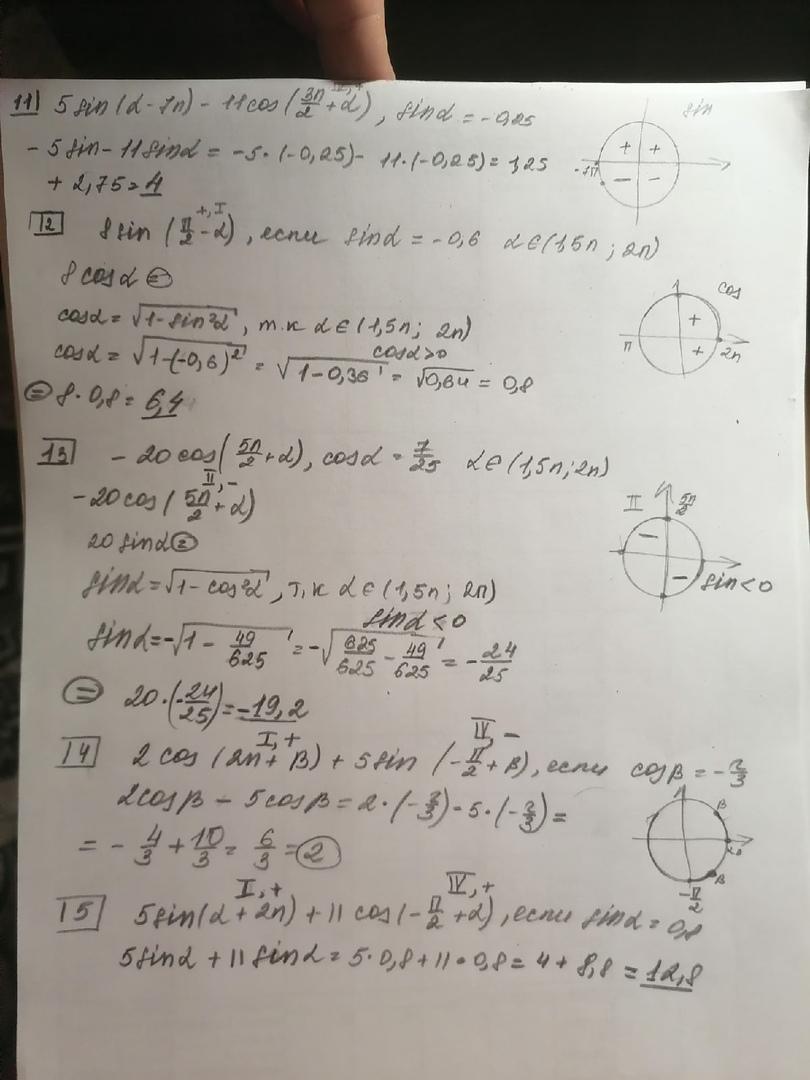 11) 5sin(α-7π) - 11cos(3π/2+α), sinα = -0,25
IV,+
sin
- 5sin - 11sinα = -5·(-0,25) - 11·(-0,25) = 1,25
+ 2,75 = 4
+ +
-7π
- -
12 8sin(π/2-α), если sinα = -0,6 α∈(1,5π; 2π)
+, I
8cosα =
cos
cosα = √1-sin²α, т.к α∈(1,5π; 2π)
cosα>0
cosα = √1-(-0,6)² = √1-0,36 = √0,64 = 0,8
1
+
π + 2π
= 8·0,8 = 6,4
13 - 20cos(5π/2+α), cosα = 7/25 α∈(1,5π; 2π)
II, -
-20cos(5π/2+α)
II 5π/2
20sinα =
-
- sin<0
sinα = √1-cos²α, т.к α∈(1,5π; 2π)
sinα<0
sinα = -√1-49/625 = -√625/625-49/625 = -24/25
= 20·(-24/25) = -19,2
14 2cos(2π+β) + 5sin(-π/2+β), если cosβ = -2/3
I,+ IV, -
2cosβ - 5cosβ = 2·(-2/3) - 5·(-2/3) =
= - 4/3 + 10/3 = 6/3 = 2
1
β
β
-π/2
15 5sin(α+2π) + 11cos(-π/2+α), если sinα = 0,8
I,+ IV,+
5sinα + 11sinα = 5·0,8 + 11·0,8 = 4 + 8,8 = 12,8